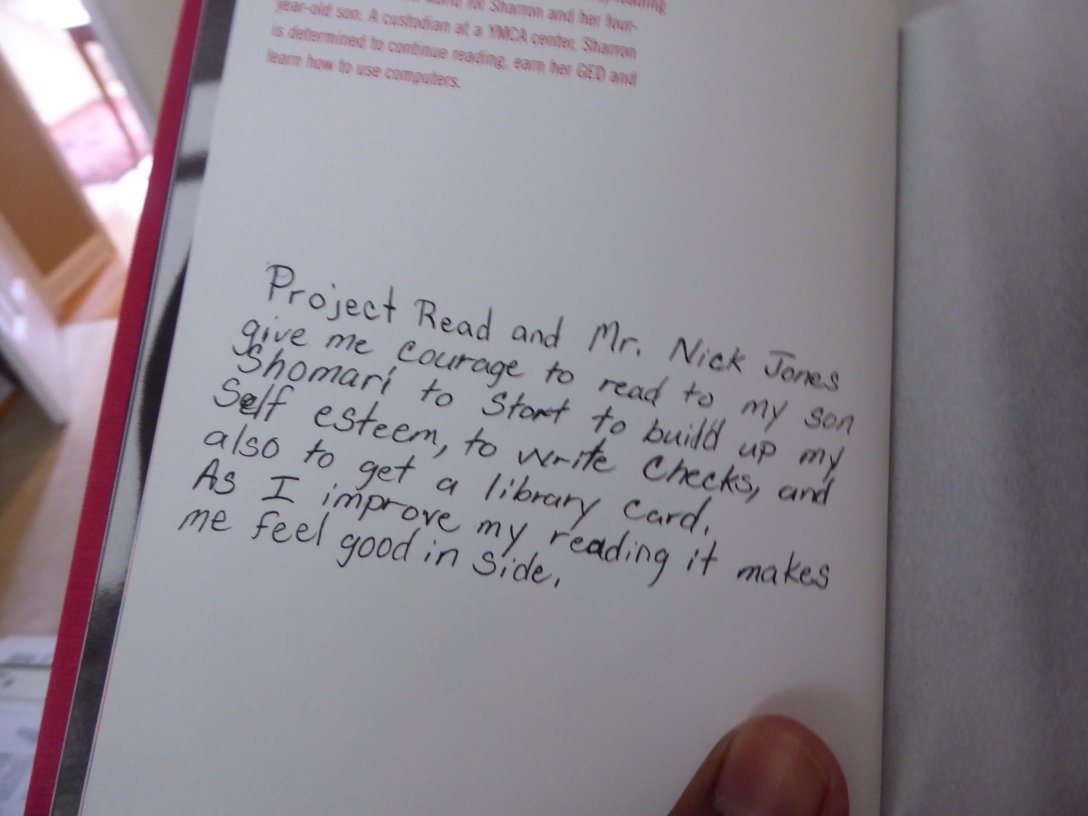 reading
for Sharron and her four-
year-old son. A custodian at a YMCA center, Sharron
is determined to continue reading, earn her GED and
learn how to use computers.
Project Read and Mr. Nick Jones
give me courage to read to my son
Shomari to Start to build up my
Self esteem, to write Checks, and
also to get a library card.
As I improve my reading it makes
me feel good in side.